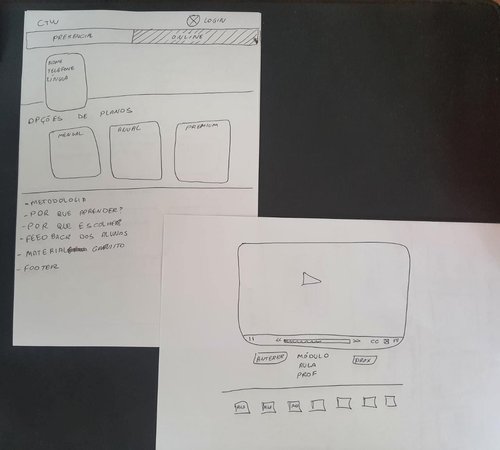 CTW
LOGIN
PRESENCIAL
ONLINE
NOME
TELEFONE
LÍNGUA
OPÇÕES DE PLANOS
MENSAL
ANUAL
PREMIUM
- METODOLOGIA
- POR QUE APRENDER?
- POR QUE ESCOLHER?
- FEEDBACK DOS ALUNOS
- MATERIAL GRATUITO
- FOOTER
CC
ANTERIOR
MÓDULO
AULA
PROF
PROX
AULA
AULA